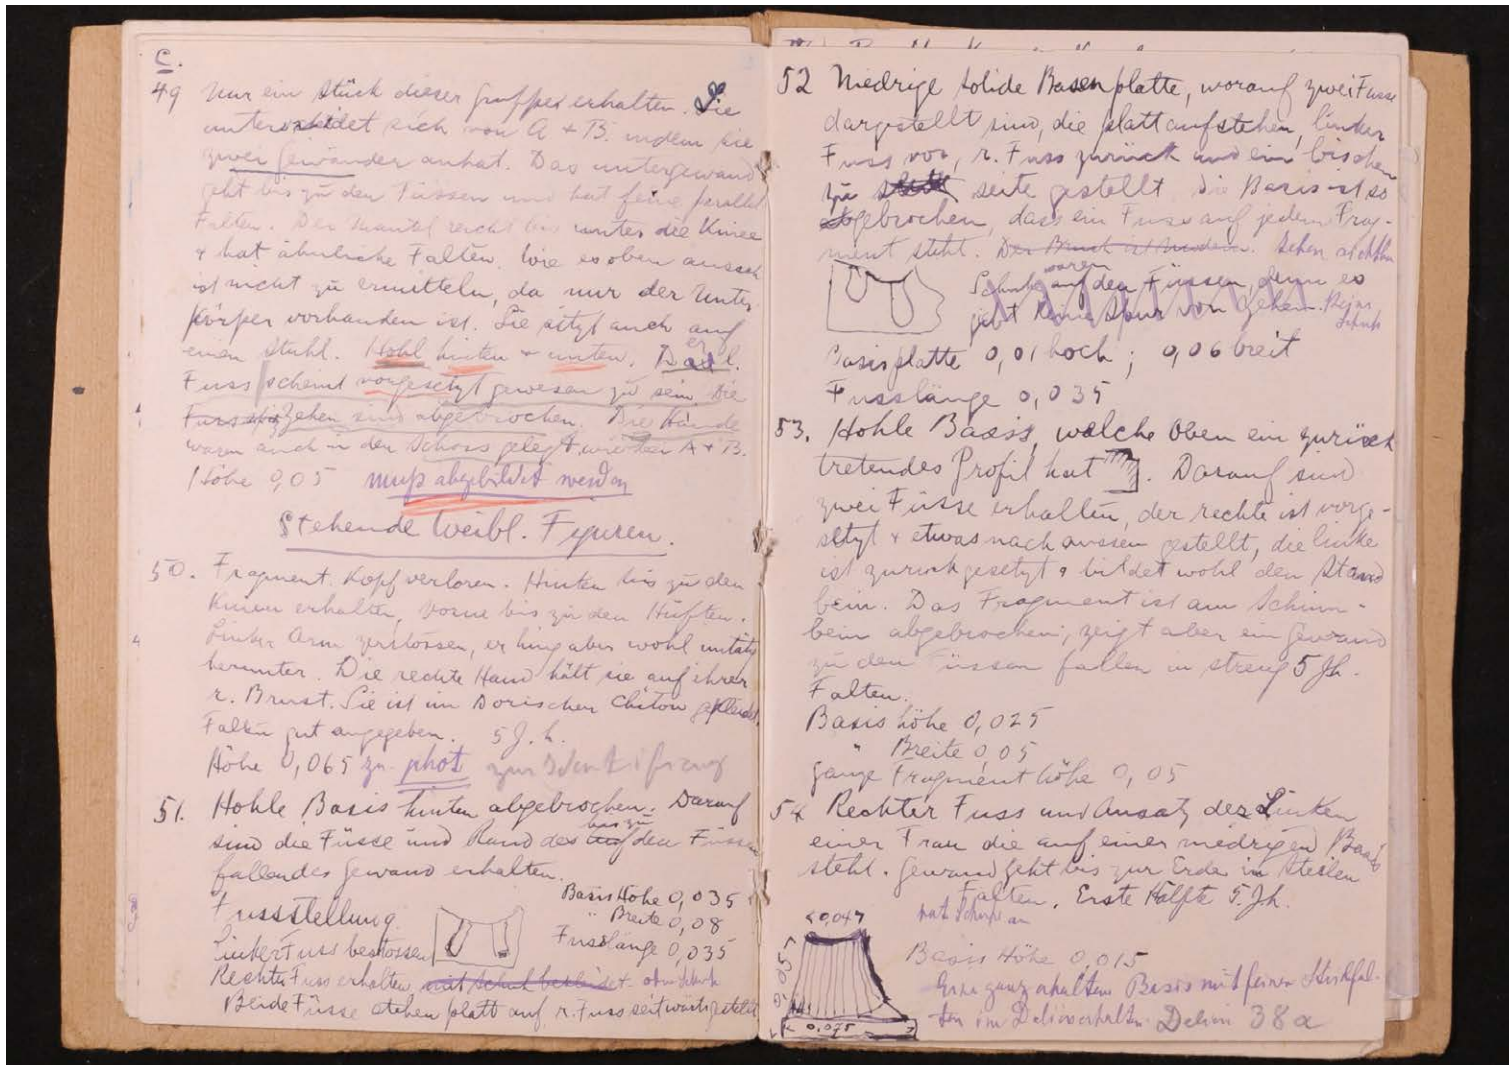 C.
49 Nur ein Stück dieser Gruppe erhalten. Sie
unterscheidet sich von A + B. indem sie
zwei Gewänder anhat. Das untergewand
geht bis zu den Füssen und hat feine parallel
Falten. Der Mantel reicht bis unter die Kniee
+ hat ähnliche Falten. Wie es oben aussah
ist nicht zu ermitteln, da nur der Unter-
körper vorhanden ist. Sie sitzt auch auf
einen Stuhl. Hohl hinten + unten. Der l.
Fuss scheint vorgesetzt gewesen zu sein. Die
Zehen sind abgebrochen. Die Hände
waren auch in den Schoss gelegt wie bei A + B.
Höhe 0,05 muß abgebildet werden
Stehende Weibl. Figuren.
50. Fragment. Kopf verloren. Hinten bis zu den
Knien erhalten, vorne bis zu den Hüften.
Linker Arm zerstossen, er hing aber wohl untätig
herunter. Die rechte Hand hält sie auf ihrer
r. Brust. Sie ist im Dorischen Chiton gekleidet.
Falten gut angegeben. 5 J. h.
Höhe 0,065 zu phot
51. Hohle Basis hinten abgebrochen. Darauf
sind die Füsse und Rand des bis zu den Füssen
fallendes Gewand erhalten.
Basis Höhe 0,035
" Breite 0,08
Fusslänge 0,035
Fussstellung.
Linker Fuss bestossen
Rechter Fuss erhalten, mit Schuh bekleidet. ohne Schuh
Beide Füsse stehen platt auf, r. Fuss seitwärts gestellt
52 Niedrige solide Basenplatte, worauf zwei Füsse
dargestellt sind, die platt aufstehen, linker
Fuss vor, r. Fuss zurück und ein bischen
zu seite gestellt. Die Basis ist so
abgebrochen, dass ein Fuss auf jedem Frag-
ment steht. Der Bruch ist modern.
Schuhe waren auf den Füssen, denn es
gibt keine Spur von Zehen.
Basisplatte 0,01 hoch; 0,06 breit
Fusslänge 0,035
53. Hohle Basis, welche oben ein zurück
tretendes Profil hat. Darauf sind
zwei Füsse erhalten, der rechte ist vorge-
setzt + etwas nach aussen gestellt, die linke
ist zurückgesetzt + bildet wohl den Stand
bein. Das Fragment ist am Schien-
bein abgebrochen, zeigt aber ein Gewand
zu den Füssen fallen in streng 5 Jh.
Falten.
Basis höhe 0,025
" Breite 0,05
ganze Fragment höhe 0,05
54 Rechter Fuss und Ansatz des Linken
einer Frau die auf einer niedrigen Basis
steht. Gewand geht bis zur Erde in steilen
Falten. Erste Hälfte 5. Jh.
hat Schuhe an
0,047
0,057
0,075
Basis Höhe 0,015
Eine ganz erhaltene Basis mit feinen
Delion 38a